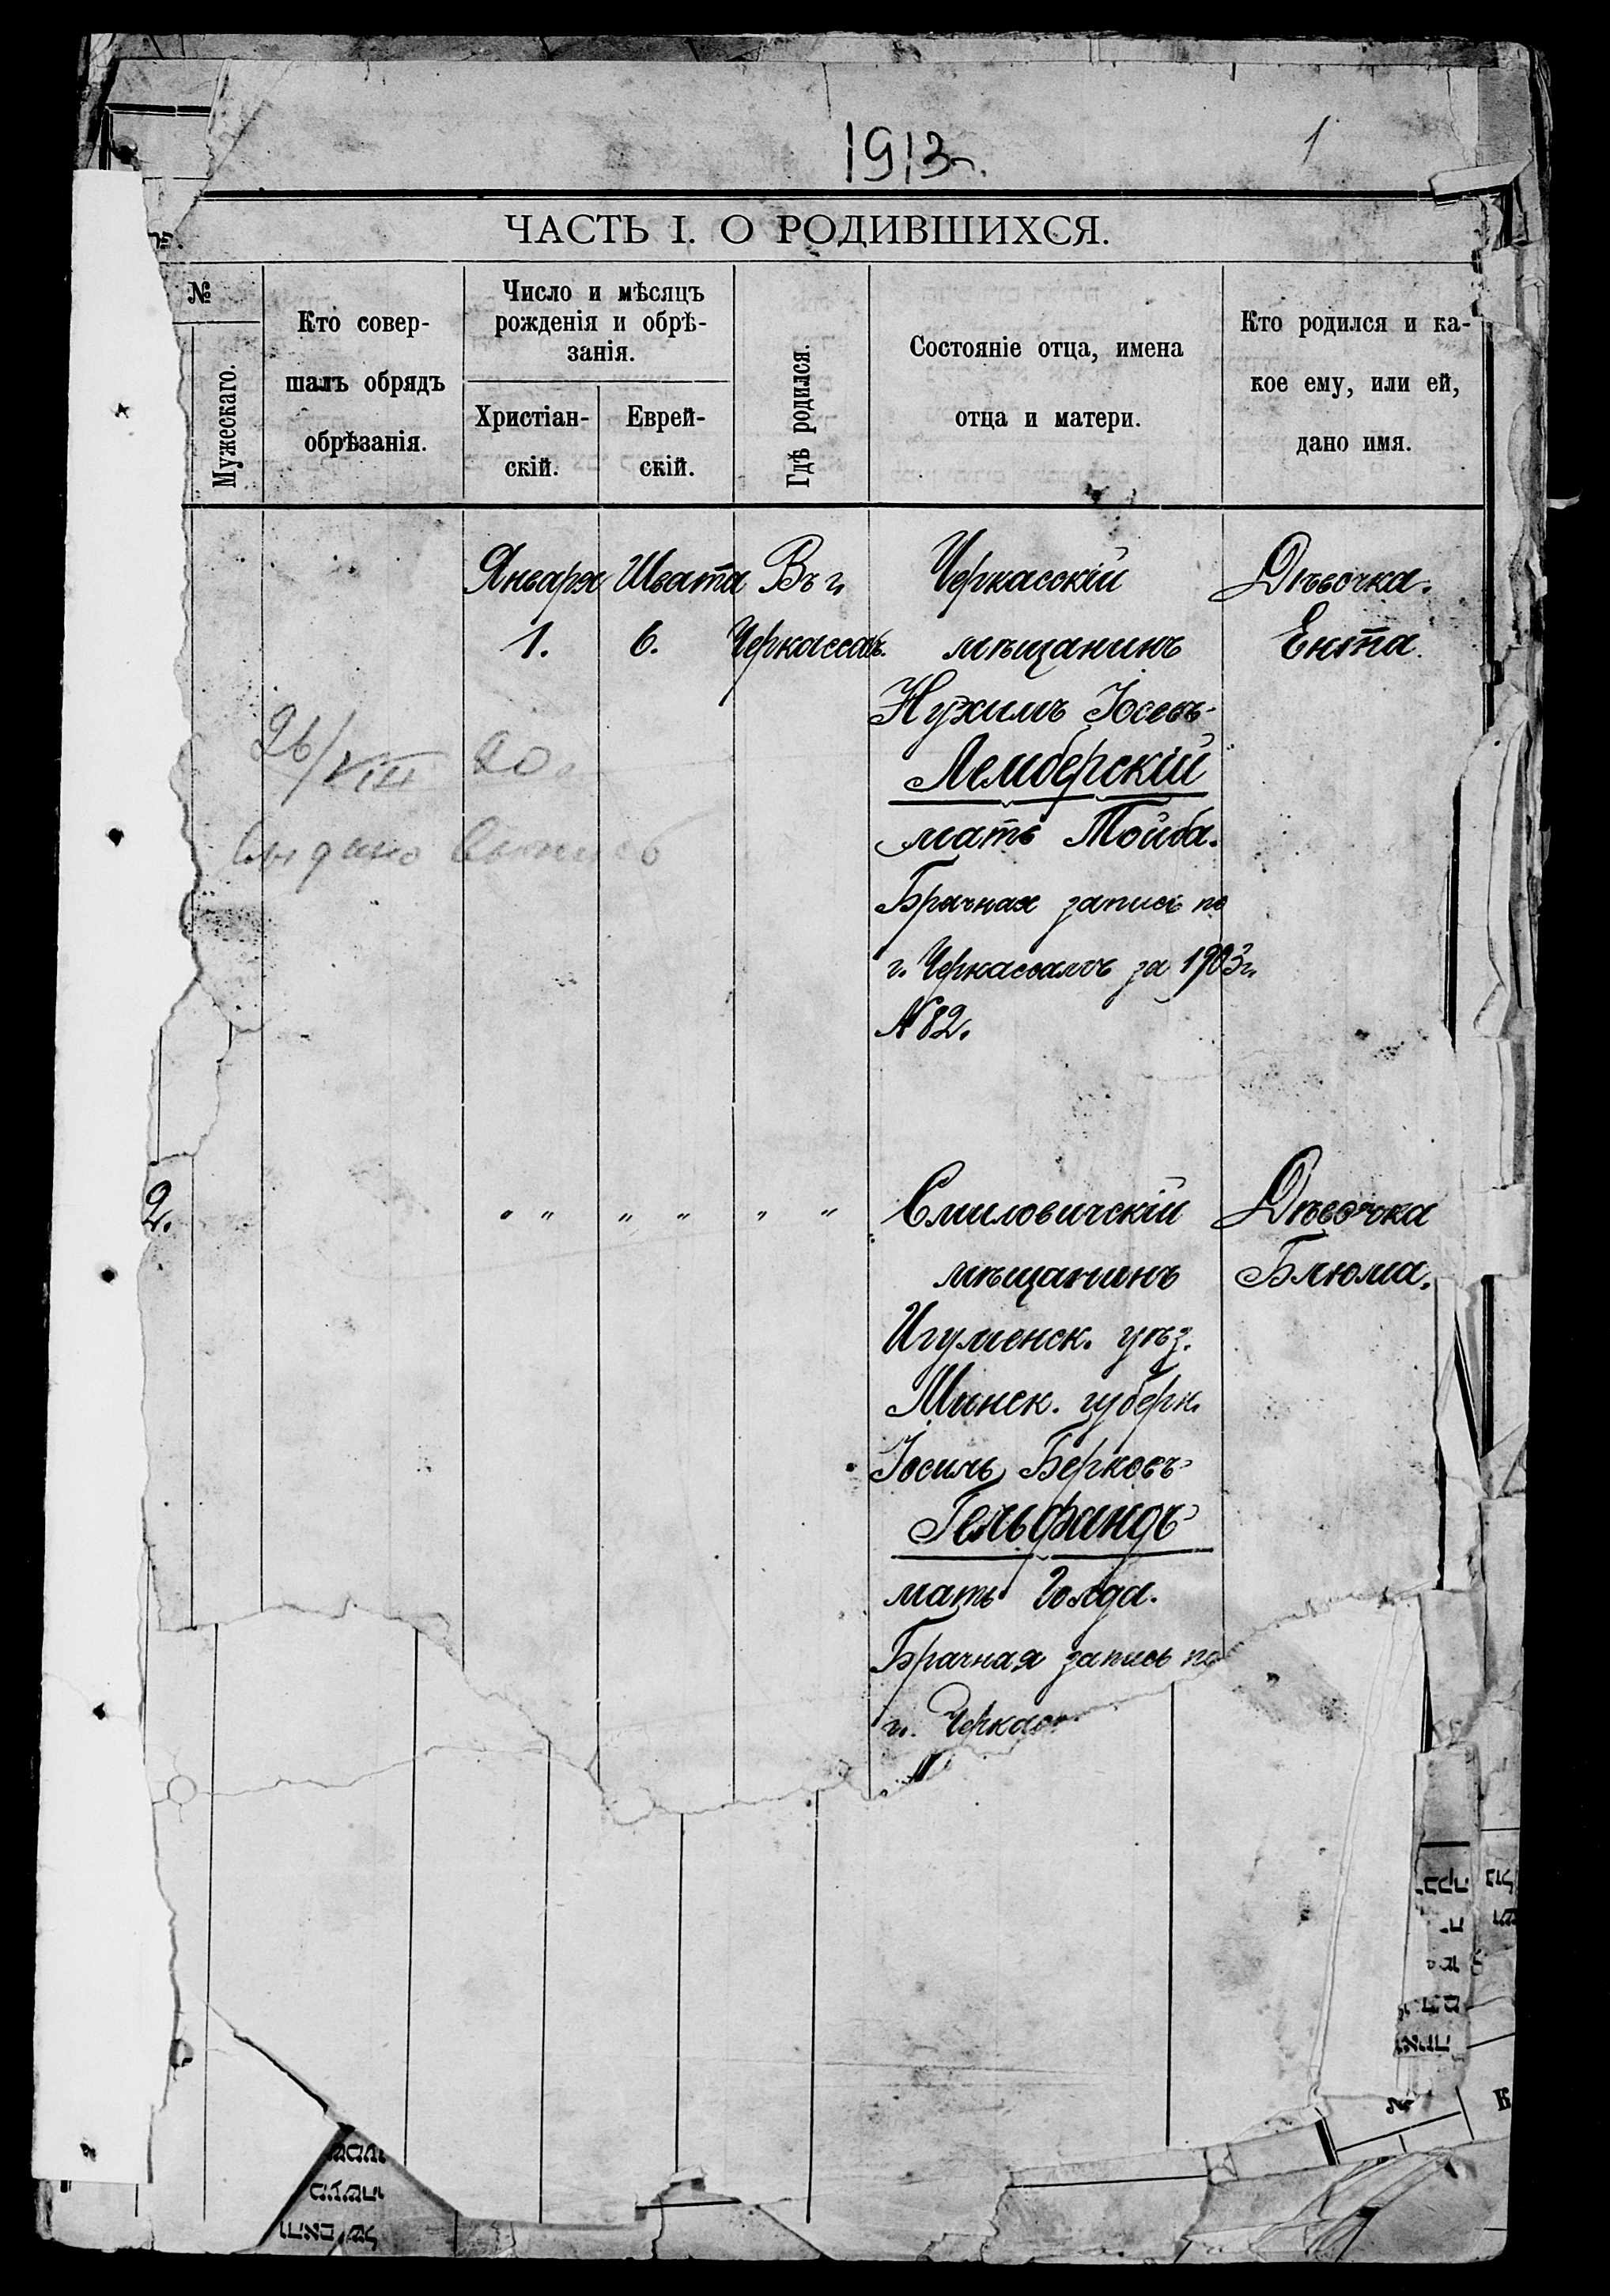 1913 г.
1
ЧАСТЬ I. О РОДИВШИХСЯ.
№
Мужескаго.
Кто совер-
шалъ обрядъ
обрѣзанія.
Число и мѣсяцъ
рожденія и обрѣ-
занія.
Христіан-
скій.
Еврей-
скій.
Гдѣ родился.
Состояніе отца, имена
отца и матери.
Кто родился и ка-
кое ему, или ей,
дано имя.
Января Швата Въ г. Черкасскій Дѣвочка.
1. 6. Черкассахъ. мѣщанинъ Ента.
Нухимъ Іосевъ
Лемберскій
мать Тойба.
Брачная запись по
г. Черкассамъ за 1903 г.
№ 82.
26/VIII 20
выдано выпись
2. " " " " " " Смиловичскій Дѣвочка
мѣщанинъ Блюма.
Игуменск. уѣз.
Минск. губерн.
Іосиль Берковъ
Гельфандъ
мать Голда.
Брачная запись по
г. Черкас
№